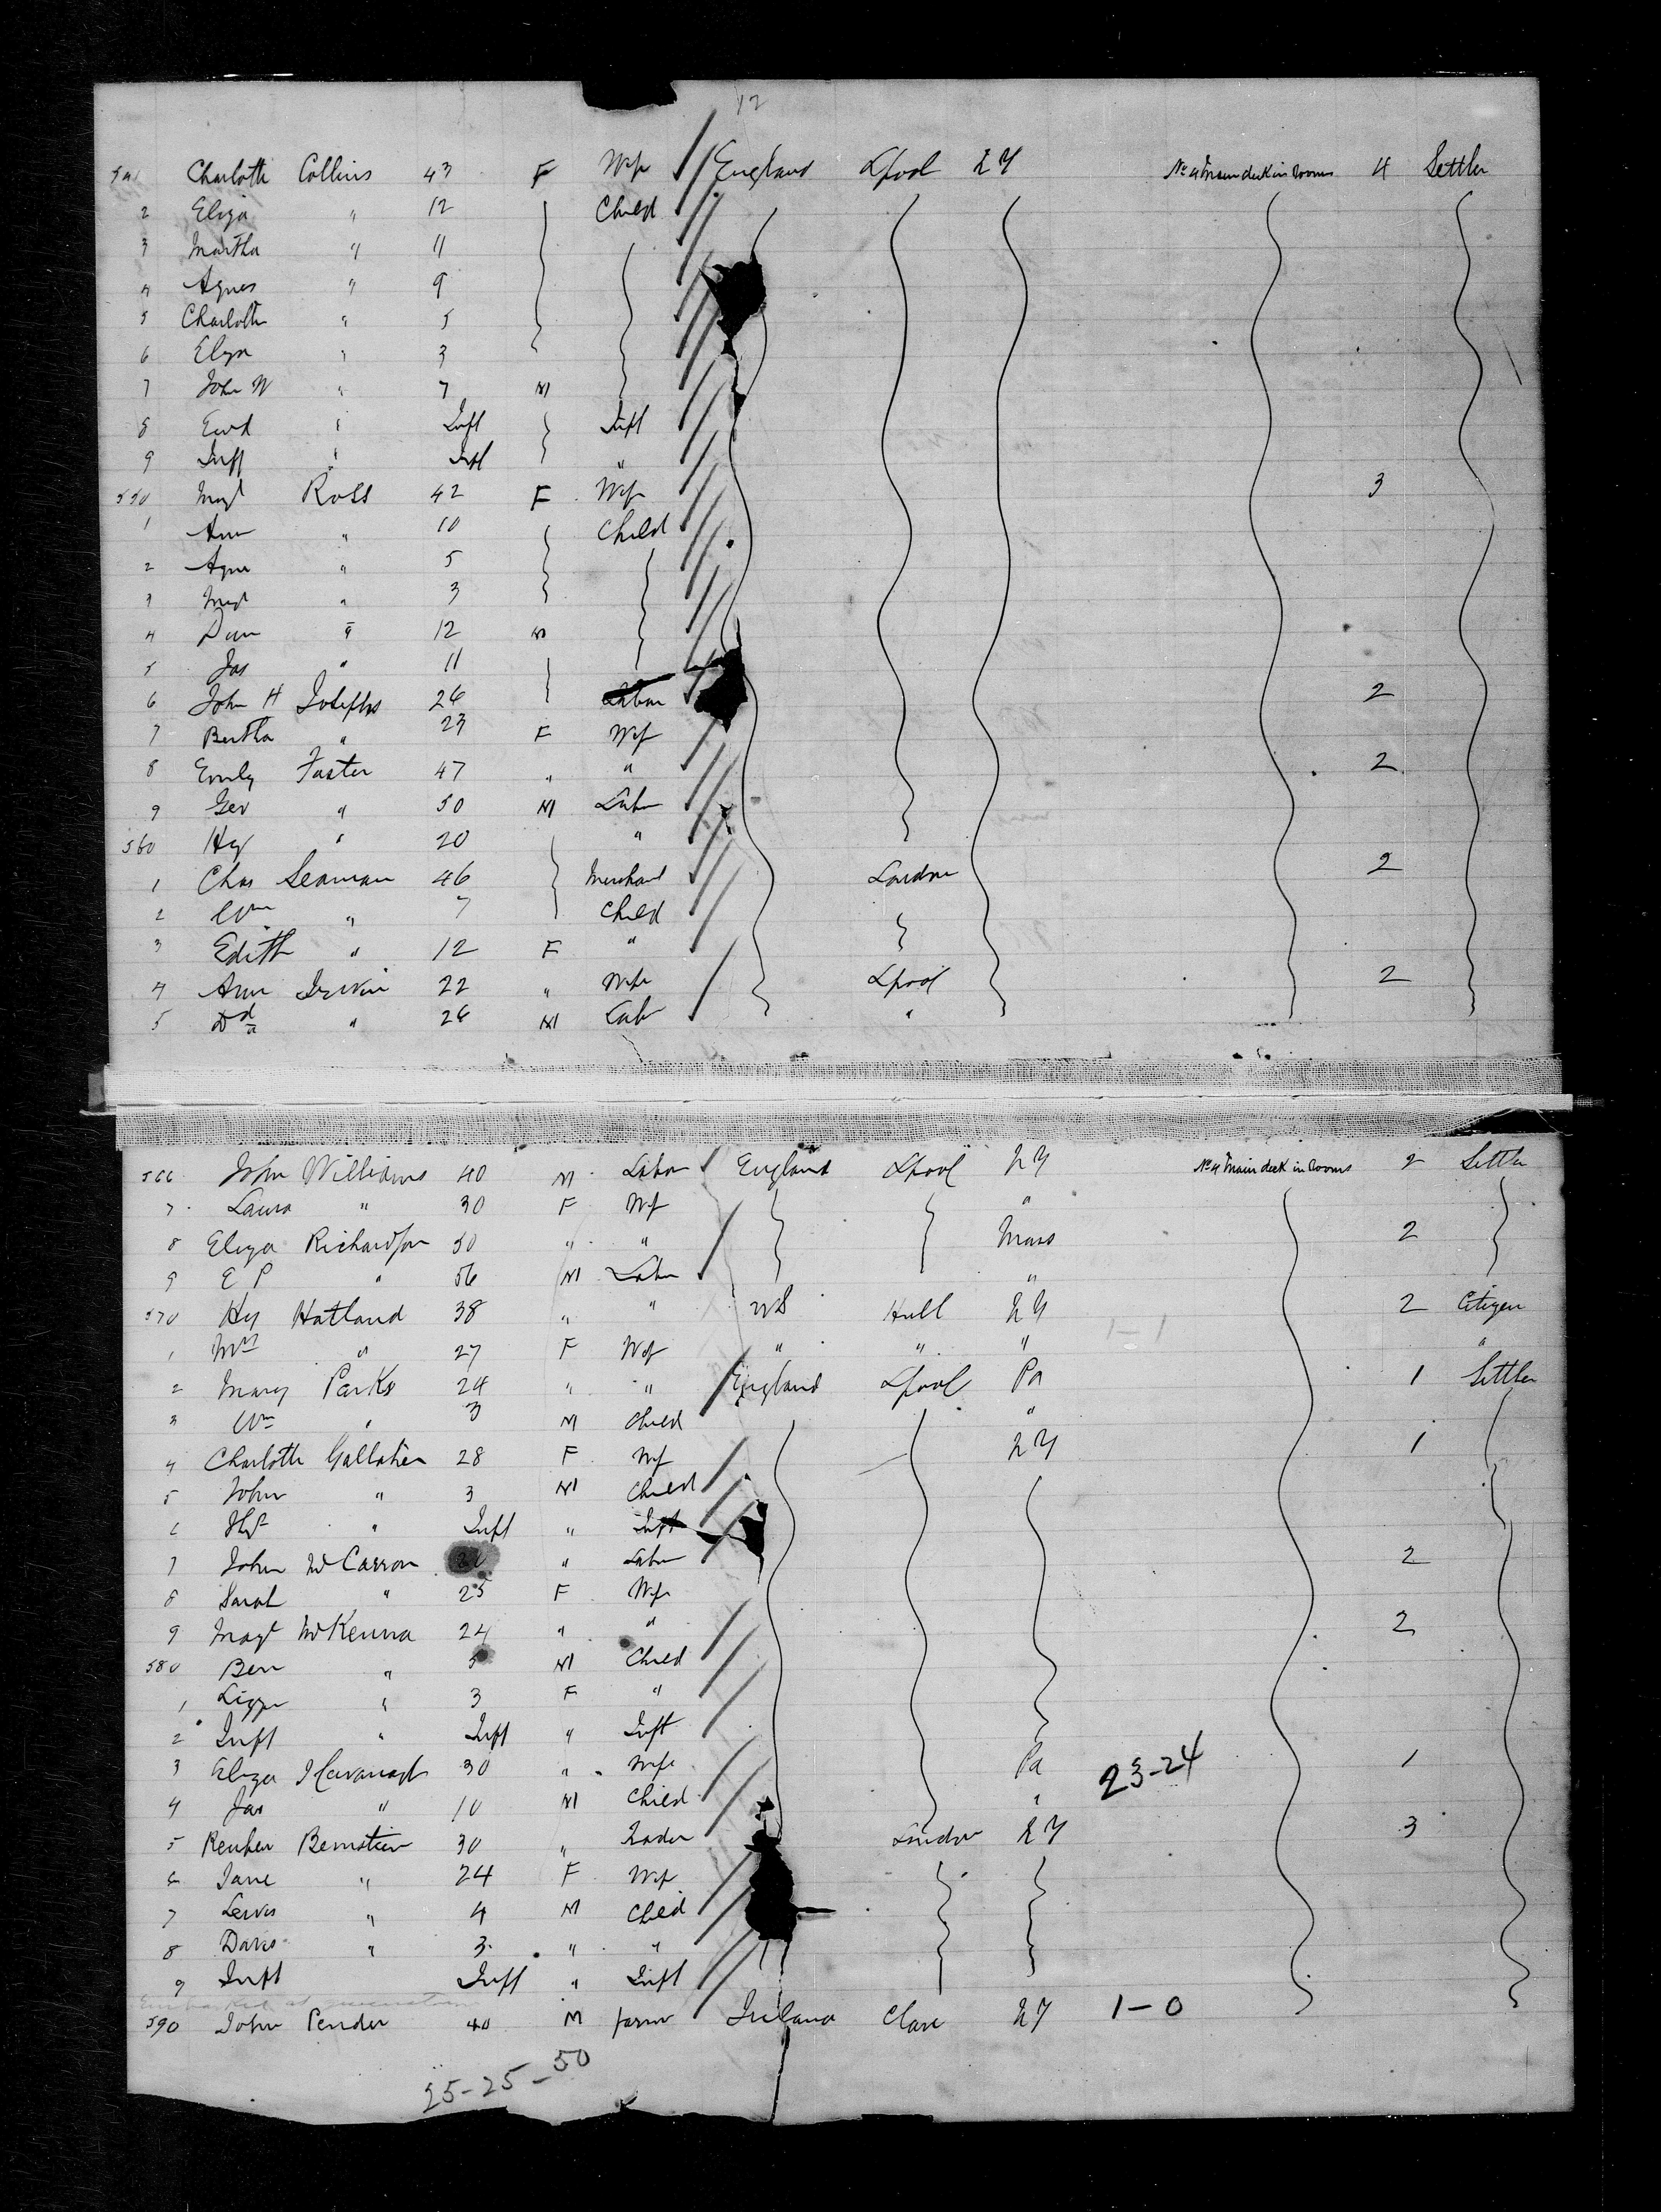 12
541 Charlotte Collins 43 F Wife England Lpool NY No 4 Main deck in Rooms 4 Settler
2 Eliza " 12 Child
3 Martha " 11
4 Agnes " 9
5 Charlotte " 5
6 Eliza " 3
7 John W " 7 M
8 Ewd " Inft Inft
9 Inft " Inft "
550 Mgt Ross 42 F Wife 3
1 Ann " 10 Child
2 Agnes " 5
3 Mgt " 3
4 " 12 M
5 Jas " 11
6 John H Josephs 26 Labor 2
7 Bertha " 23 F Wife
8 Emily Foster 47 " " 2
9 Geo " 50 M Labr
560 Hy " 20 "
1 Chas Seaman 46 Merchant London 2
2 Wm " 7 Child
3 Edith " 12 F "
4 Ann 22 " Wife Lpool 2
5 Dd " 26 M Labr "
566 John Williams 40 M Labor England Lpool NY No 4 Main deck in Rooms 2 Settler
7 Laura " 30 F Wf "
8 Eliza Richardson 50 " " Mass 2
9 E P " 56 M Labor "
570 Hy Hatland 38 " " US Hull NY 2 Citizen
1 Mrs " 27 F Wf " " " 1-1 "
2 Mary Parks 24 " " England Lpool Pa 1 Settler
3 Wm " 3 M Child "
4 Charlotte Gallaher 28 F Wf NY 1
5 John " 3 M Child
6 " Inft " Inft
7 John McCarron " Labor 2
8 Sarah " 25 F Wife
9 Magt McKenna 24 " " 2
580 Ben " 5 M Child
1 Lizzie " 3 F "
2 Inft " Inft " Inft
3 Eliza Kavanagh 30 " Wife Pa 23-24 1
4 Jas " 10 M Child "
5 Reuben Bernstein 30 " London NY 3
6 Jane " 24 F Wife
7 Lewis " 4 M Child
8 Davis " 3 " "
9 Inft Inft " Inft
590 John Pender 40 M farmr Ireland Clare NY 1-0
25-25-50